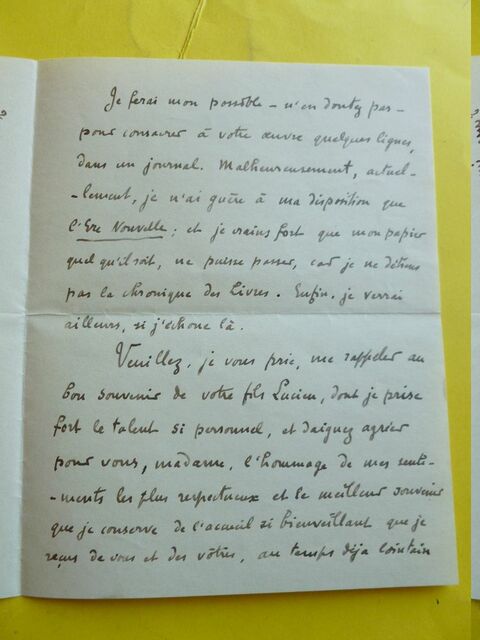 Je ferai mon possible – n'en doutez pas –
pour consacrer à votre œuvre quelques lignes,
dans un journal. Malheureusement, actuel-
-lement, je n'ai guère à ma disposition que
l'Ere Nouvelle ; et je crains fort que mon papier
quel qu'il soit, ne puisse passer, car je ne détiens
pas la chronique des Livres. Enfin, je verrai
ailleurs, si j'échoue là.
Veuillez, je vous prie, me rappeler au
bon souvenir de votre fils Lucien, dont je prise
fort le talent si personnel, et daignez agréer
pour vous, madame, l'hommage de mes senti-
-ments les plus respectueux et le meilleur souvenir
que je conserve de l'accueil si bienveillant que je
reçus de vous et des vôtres, au temps déjà lointain